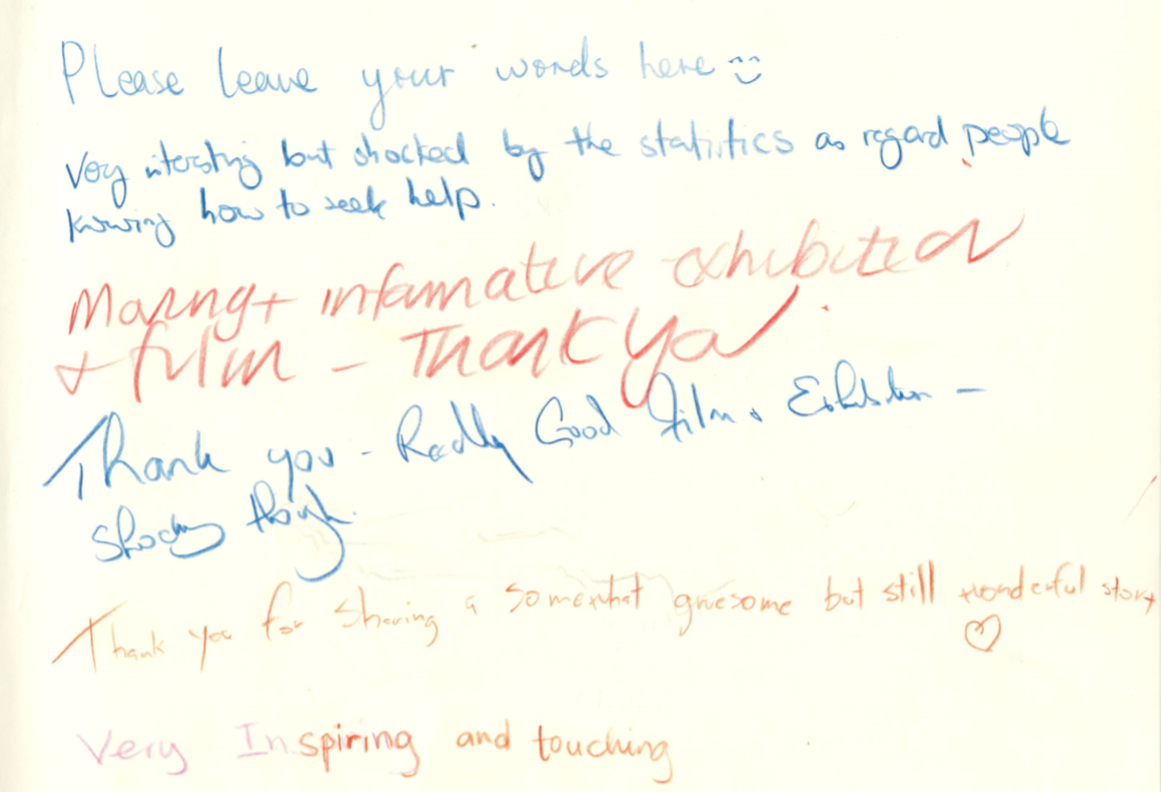 Please leave your words here
Very interesting but shocked by the statistics as regard people
knowing how to seek help.
Moving + informative exhibition
+ film - Thank you
Thank you - Really Good Film & Exhibition -
Shocking though.
Thank you for sharing a somewhat gruesome but still wonderful story ♡
Very Inspiring and touching